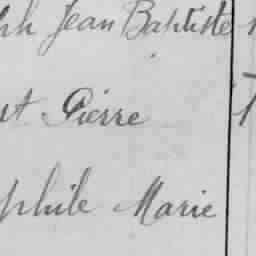 ph Jean Baptiste
st Pierre
phile Marie